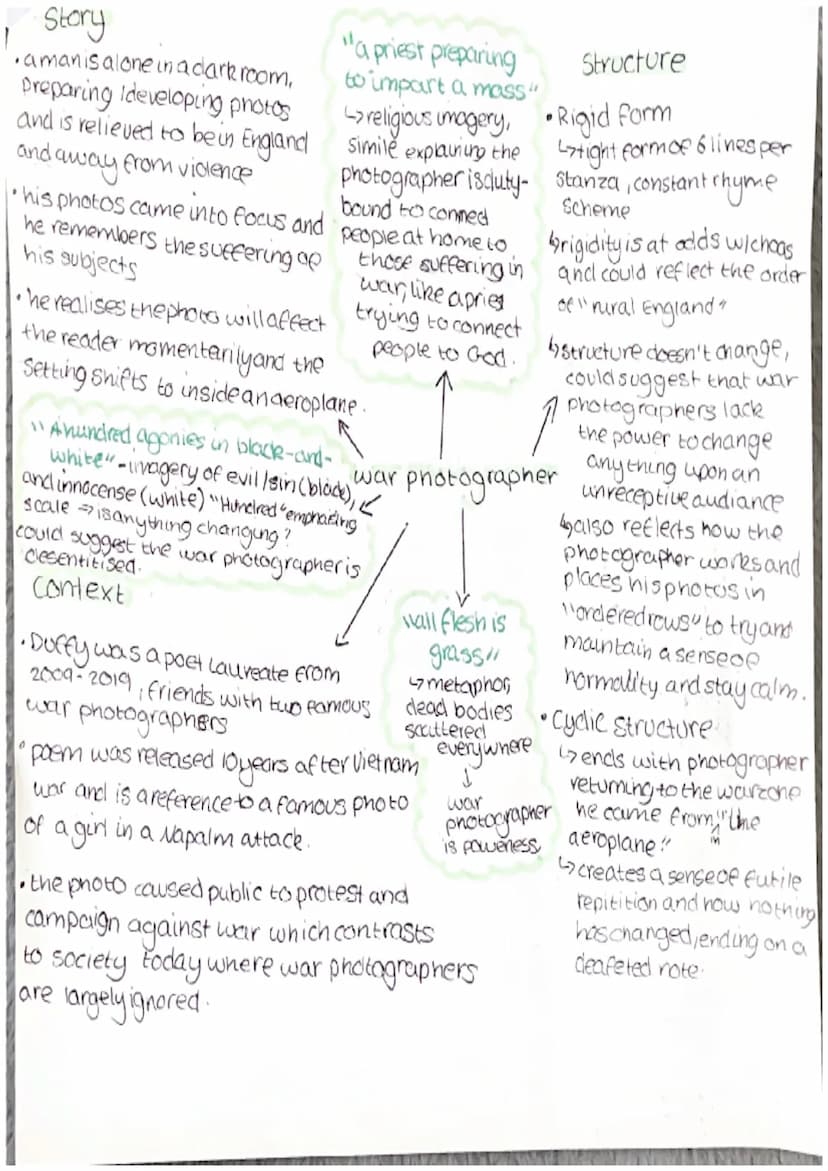 Story
• a man is alone in a dark room,
preparing / developing photos
and is relieved to be in England
and away from violence
• his photos came into focus and
he remembers the suffering of
his subjects
• he realises the photo will affect
the reader momentarily and the
setting shifts to inside an aeroplane.
"a priest preparing
to impart a mass"
↳ religious imagery,
simile explaining the
photographer is duty-
bound to conned
people at home to
those suffering in
war, like a pries
trying to connect
people to God.
Structure
• Rigid form
↳ tight form of 6 lines per
stanza, constant rhyme
scheme
↳ rigidity is at odds w/ chaos
and could reflect the order
of "rural England"
↳ structure doesn't change,
could suggest that war
photographers lack
the power to change
anything upon an
unreceptive audiance
↳ also reflects how the
photographer works and
places his photos in
"ordered rows" to try and
maintain a sense of
normality and stay calm.
• Cyclic structure
↳ ends with photographer
returning to the warzone
he came from, "the
m
aeroplane"
↳ creates a sense of futile
repitition and how nothing
has changed, ending on a
deafeted note.
war photographer
"A hundred agonies in black-and-
white" - imagery of evil / sin (black),
and innocense (white) "Hundred" emphasing
scale ⇒ is anything changing?
could suggest the war photographer is
desentitised.
Context
• Duffy was a poet Laureate from
2009-2019, friends with two famous
war photographers
• poem was released 10 years after Vietnam
war and is a reference to a famous photo
of a girl in a Napalm attack.
• the photo caused public to protest and
campaign against war which contrasts
to society today where war photographers
are largely ignored.
"all flesh is
grass"
↳ metaphor,
dead bodies
scattered
everywhere
↓
war
photographer
is powerless